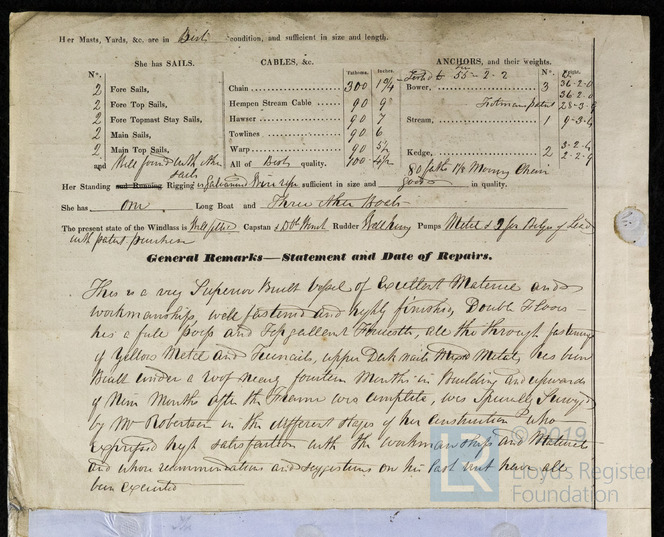 Her Masts, Yards, &c. are in Best condition, and sufficient in size and length.
She has SAILS.
CABLES, &c.
ANCHORS, and their weights.
N°.
Fathoms.
Inches.
N°.
2 Fore Sails,
Chain 300 1¾
Bower, 3 36-2-0
2 Fore Top Sails,
Hempen Stream Cable 90 9
36-2-0
2 Fore Topmast Stay Sails,
Hawser 90 7
Trotman patent
2 Main Sails,
Towlines 90 6
Stream, 1
2 Main Top Sails,
Warp 90
Kedge, 2
and Well found with other Sails
All of Best quality.
Mooring Chain
Her Standing and Running Rigging is Galvanized Wire rope sufficient in size and good in quality.
She has one Long Boat and Three other Boats
The present state of the Windlass is Well fitted Capstan & Dble Winch Rudder Well hung Pumps Metal & 2 for Bilge of Lead
with patent purchase
General Remarks—Statement and Date of Repairs.
This is a very Superior Built Vessel of Excellent Material and
workmanship, well fastened and highly finished, Double Floors –
has a full poop and Topgallant Forecastle, all the through fastenings
of Yellow Metal and Treenails, upper Deck nails Mixed Metal, has been
Built under a roof nearly fourteen Months in Building and upwards
of Nine Months after the Frame was complete, was Specially Surveyed
by Mr Robertson in the different stages of her Construction who
expressed high satisfaction with the workmanship and Material
and whose recommendations and suggestions on his last visit have all
been executed
© 2019
LR
Lloyd's Register
Foundation